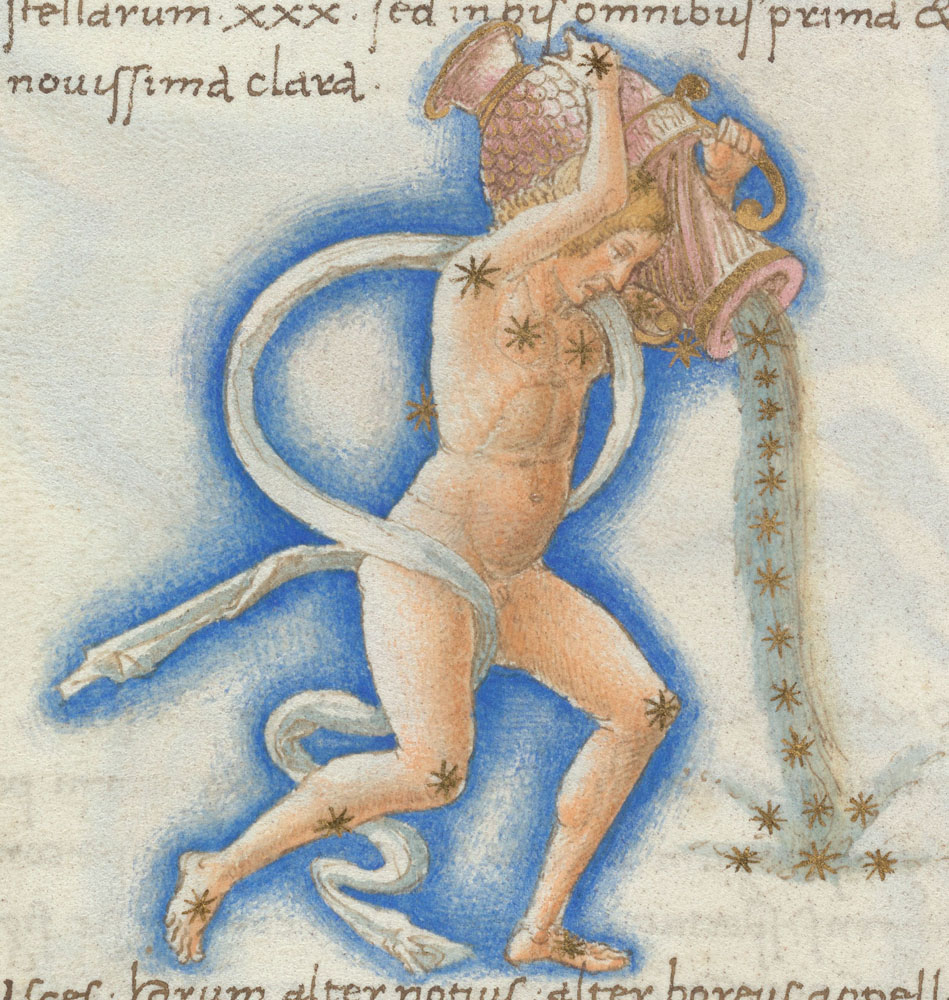 stellarum · xxx · sed in his omnibus prima &
nouissima clara ·
isces · Harum alter notius · alter boreus appell